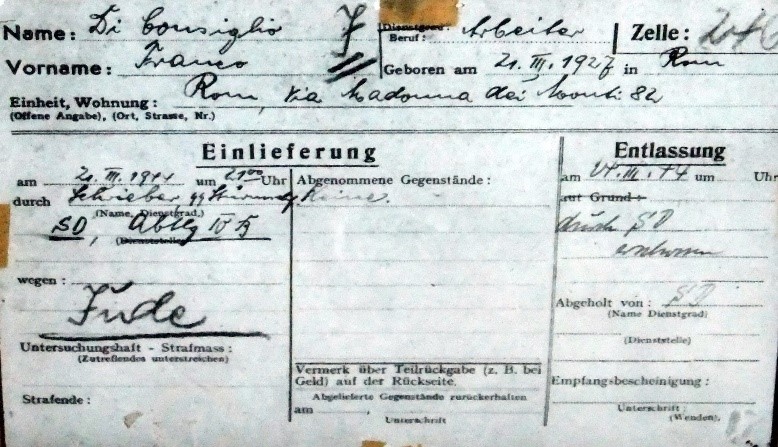 Name: Di Consiglio J Dienstgrad: Beruf: Arbeiter Zelle:
Vorname: Franco Geboren am 21. III. 1927 in Rom
Einheit, Wohnung: Rom, via Madonna dei Monti 82
(Offene Angabe), (Ort, Strasse, Nr.)
Einlieferung
am 21. III. 1944 um 2100 Uhr
durch Schreiber, SS Sturmm
(Name, Dienstgrad,)
SD, Abtlg IV B
(Dienststelle)
wegen:
Jude
Untersuchungshaft - Strafmass:
(Zutreffendes unterstreichen)
Strafende:
Abgenommene Gegenstände:
Keine.
Vermerk über Teilrückgabe (z. B. bei
Geld) auf der Rückseite.
Abgelieferte Gegenstände zurückerhalten
am
Unterschrift
Entlassung
am 24. III. 44 um Uhr
auf Grund:
durch SD
erschossen
Abgeholt von: SD
(Name Dienstgrad)
(Dienststelle)
Empfangsbescheinigung:
Unterschrift:
(Wenden)